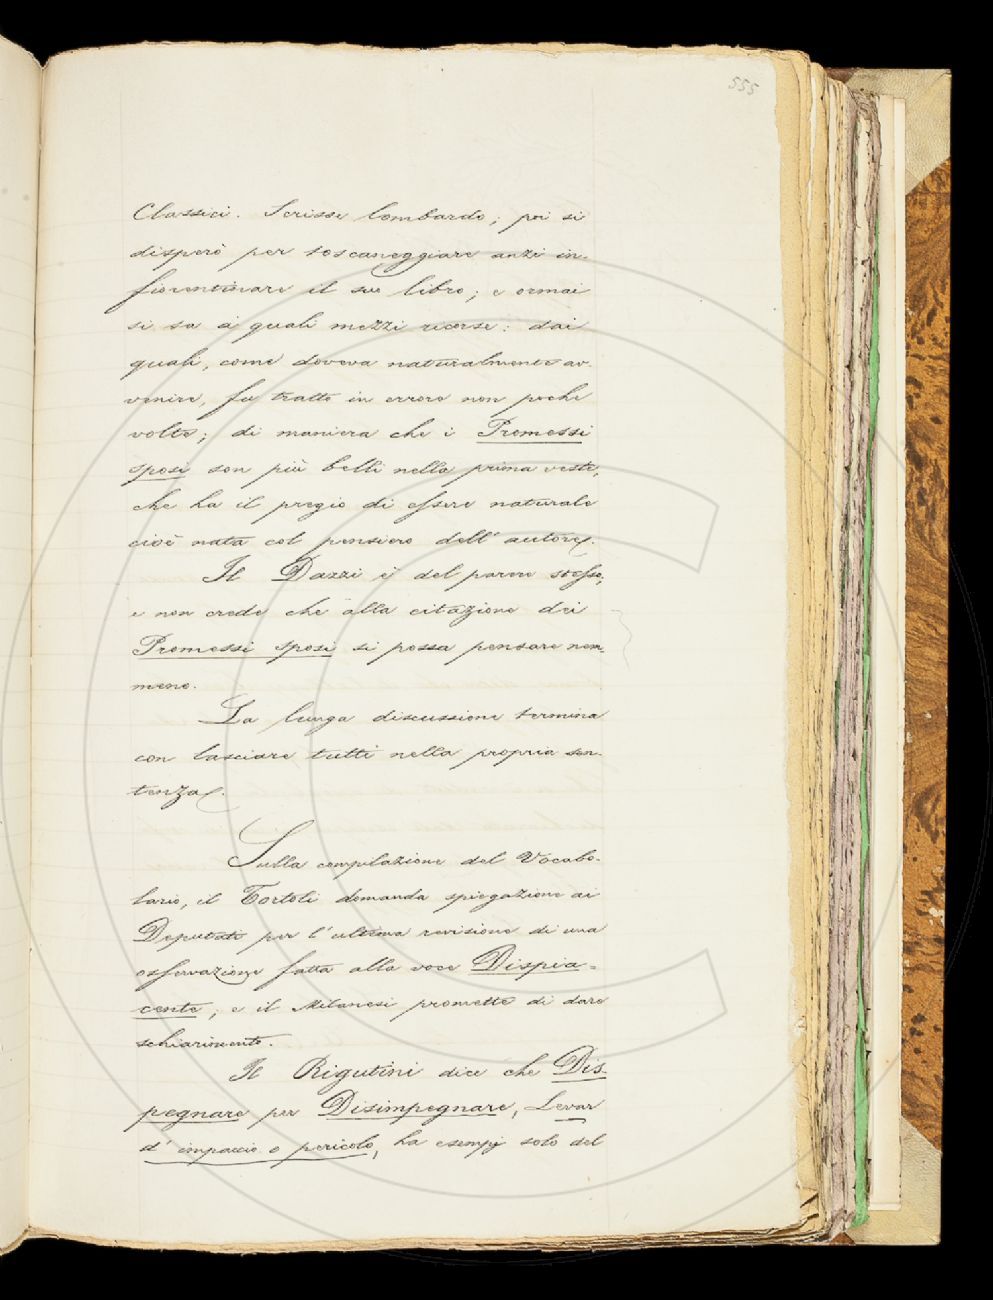 555
Classici. Scrisse lombardo; poi si
disperò per toscaneggiare anzi in-
fiorentinare il suo libro; e ormai
si sa a quali mezzi ricorse: dai
quali, come doveva naturalmente av-
venire, fu tratto in errore non poche
volte; di maniera che i Promessi
sposi son più belli nella prima veste,
che ha il pregio di essere naturale
cioè nata col pensiero dell'autore.
Il Dazzi è del parere stesso;
e non crede che alla citazione dei
Promessi sposi si possa pensare nem
meno.
La lunga discussione termina
con lasciare tutti nella propria sen-
tenza.
Sulla compilazione del Vocabo-
lario, il Tortoli domanda spiegazione ai
Deputati per l'ultima revisione di una
osservazione fatta alla voce Dispia-
cente; e il Milanesi promette di dare
schiarimento.
Il Rigutini dice che Dis-
pegnare per Disimpegnare, Levar
d'impaccio o pericolo, ha esempj solo del